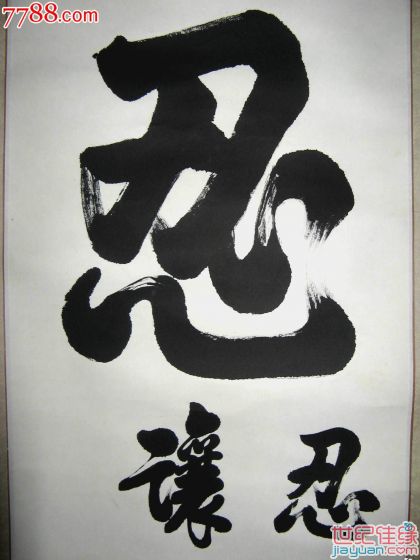 7788.com
忍
忍讓
世纪佳缘
jiayuan.com